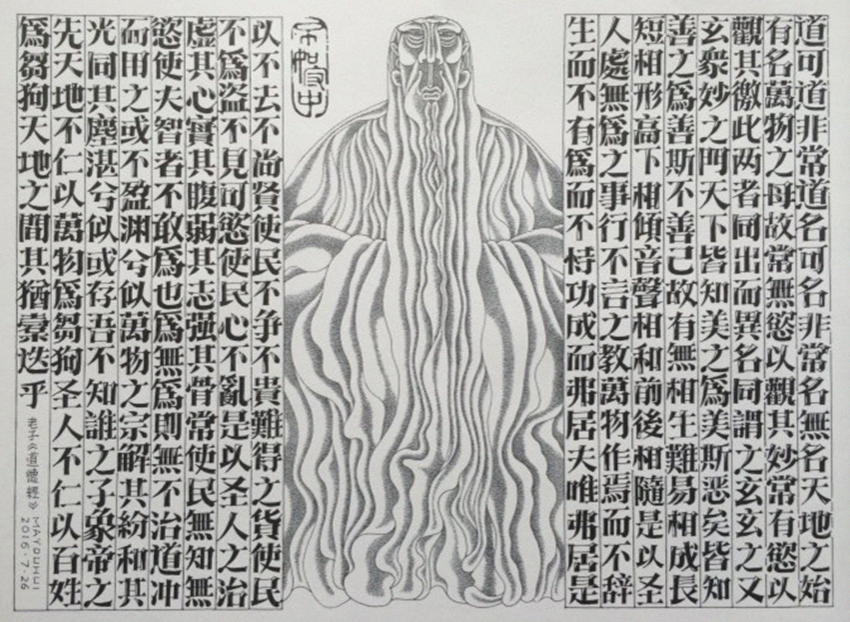 道可道非常道名可名非常名無名天地之始
有名萬物之母故常無慾以觀其妙常有慾以
觀其徼此两者同出而異名同謂之玄玄之又
玄衆妙之門天下皆知美之爲美斯恶矣皆知
善之爲善斯不善己故有無相生難易相成長
短相形高下相傾音聲相和前後相隨是以圣
人處無爲之事行不言之教萬物作焉而不辞
生而不有爲而不恃功成而弗居夫唯弗居是
以不去不尚賢使民不争不貴難得之货使民
不爲盗不見可慾使民心不亂是以圣人之治
虚其心實其腹弱其志强其骨常使民無知無
慾使夫智者不敢爲也爲無爲則無不治道冲
而用之或不盈渊兮似萬物之宗解其紛和其
光同其塵湛兮似或存吾不知誰之子象帝之
先天地不仁以萬物爲芻狗圣人不仁以百姓
爲芻狗天地之間其猶橐迭乎
老子《道德經》
MAYOUHUI
2016.7.26